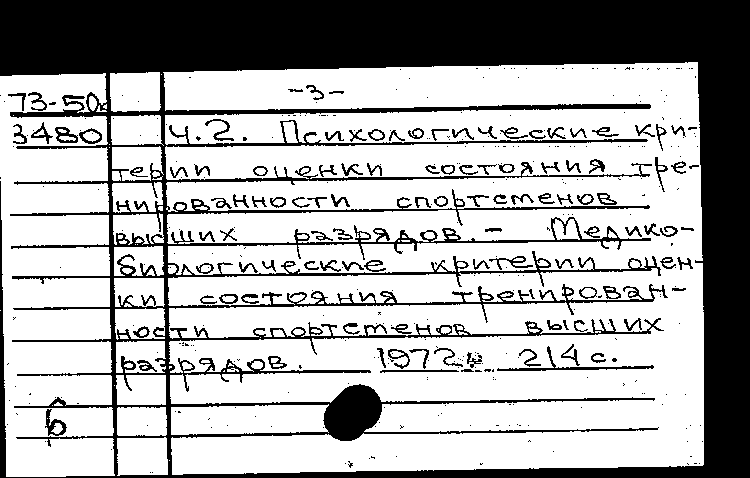 -3-
73-50
3480 Ч.2. Психологические кри-
терии оценки состояния тре-
нированности спортсменов
высших разрядов. – Медико-
биологические критерии оцен-
ки состояния тренирован-
ности спортсменов высших
разрядов. 1972. 214 с.
б